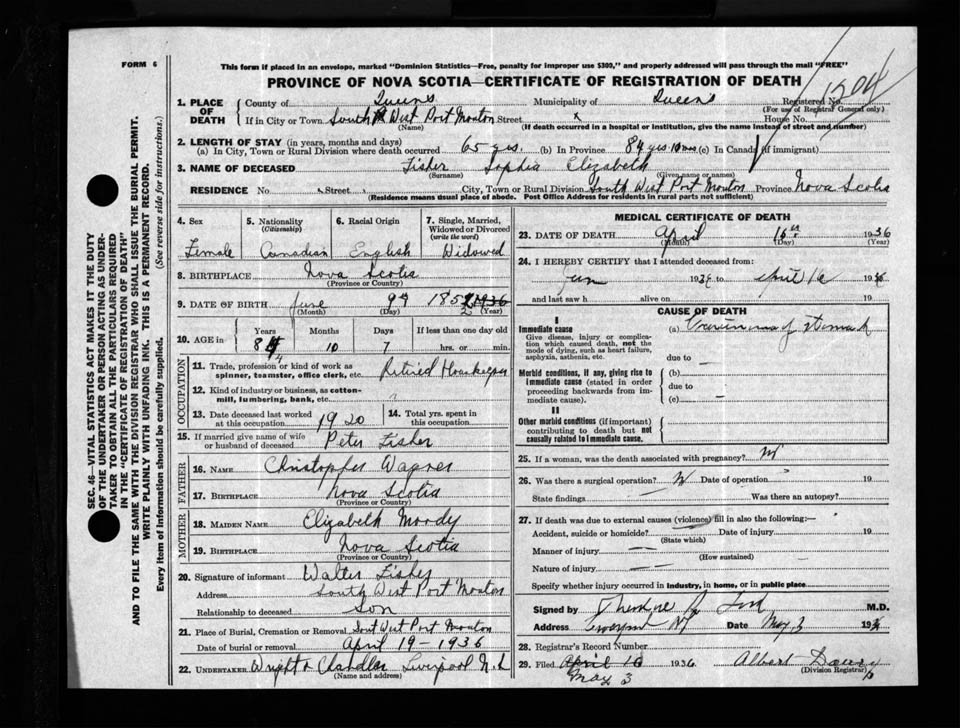 FORM 6
This form if placed in an envelope, marked "Dominion Statistics—Free, penalty for improper use $300," and properly addressed will pass through the mail "FREE"
PROVINCE OF NOVA SCOTIA—CERTIFICATE OF REGISTRATION OF DEATH
1. PLACE OF DEATH
County of Queens Municipality of Queens Registered No. 1504
(For use of Registrar General only)
If in City or Town South West Port Mouton Street x House No.
(Name) (If death occurred in a hospital or institution, give the name instead of street and number)
2. LENGTH OF STAY (in years, months and days)
(a) In City, Town or Rural Division where death occurred 65 yrs. (b) In Province 84 yrs 10 mos (c) In Canada (if immigrant)
3. NAME OF DECEASED Fisher Sophia Elizabeth
(Surname) (Given name or names)
RESIDENCE No Street City, Town or Rural Division South West Port Mouton Province Nova Scotia
(Residence means usual place of abode. Post Office Address for residents in rural parts not sufficient)
4. Sex 5. Nationality 6. Racial Origin 7. Single, Married,
(Citizenship) Widowed or Divorced
(write the word)
Female Canadian English Widowed
8. BIRTHPLACE Nova Scotia
(Province or Country)
9. DATE OF BIRTH June 9th 185 2 1936
(Month) (Day) (Year)
10. AGE in Years Months Days If less than one day old
84 10 7 hrs. or min.
OCCUPATION
11. Trade, profession or kind of work as
spinner, teamster, office clerk, etc. Retired Housekeeper
12. Kind of industry or business, as cotton-
mill, lumbering, bank, etc.
13. Date deceased last worked
at this occupation 1920
14. Total yrs. spent in
this occupation
15. If married give name of wife
or husband of deceased Peter Fisher
FATHER
16. NAME Christopher Wagner
17. BIRTHPLACE Nova Scotia
(Province or Country)
MOTHER
18. MAIDEN NAME Elizabeth Moody
19. BIRTHPLACE Nova Scotia
(Province or Country)
20. Signature of informant Walter Fisher
Address South West Port Mouton
Relationship to deceased Son
21. Place of Burial, Cremation or Removal South West Port Mouton
Date of burial or removal April 19 - 1936
22. UNDERTAKER Wright & Chandler Liverpool N.S
(Name and address)
MEDICAL CERTIFICATE OF DEATH
23. DATE OF DEATH April 16th 1936
(Month) (Day) (Year)
24. I HEREBY CERTIFY that I attended deceased from:
Jan 193 to April 16 1936
and last saw h alive on 19
CAUSE OF DEATH
I
Immediate cause
Give disease, injury or complica-
tion which caused death, not the
mode of dying, such as heart failure,
asphyxia, asthenia, etc.
(a) Carcinoma of stomach
due to —
Morbid conditions, if any, giving rise to
immediate cause (stated in order
proceeding backwards from im-
mediate cause).
(b)
due to
(c) —
II
Other morbid conditions (if important)
contributing to death but not
causally related to immediate cause.
25. If a woman, was the death associated with pregnancy?
26. Was there a surgical operation? Date of operation 19
State findings Was there an autopsy?
27. If death was due to external causes (violence) fill in also the following:—
Accident, suicide or homicide? Date of injury 19
(State which)
Manner of injury
(How sustained)
Nature of injury
Specify whether injury occurred in industry, in home, or in public place
Signed by Theodore Ford M.D.
Address Liverpool NS Date May 3 1936
28. Registrar's Record Number
29. Filed April 16 1936 Albert
May 3 (Division Registrar)
SEC. 46—VITAL STATISTICS ACT MAKES IT THE DUTY
OF THE UNDERTAKER OR PERSON ACTING AS UNDER-
TAKER TO OBTAIN ALL THE PARTICULARS REQUIRED
IN THE "CERTIFICATE OF REGISTRATION OF DEATH"
AND TO FILE THE SAME WITH THE DIVISION REGISTRAR WHO SHALL ISSUE THE BURIAL PERMIT.
WRITE PLAINLY WITH UNFADING INK. THIS IS A PERMANENT RECORD.
Every item of Information should be carefully supplied. (See reverse side for instructions.)